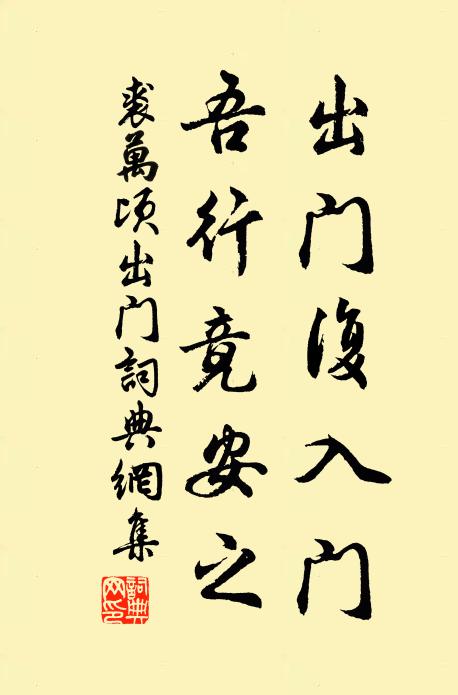 出门復入门
吾行竟安之
裘萬頃出门詞典網集
詞典網印